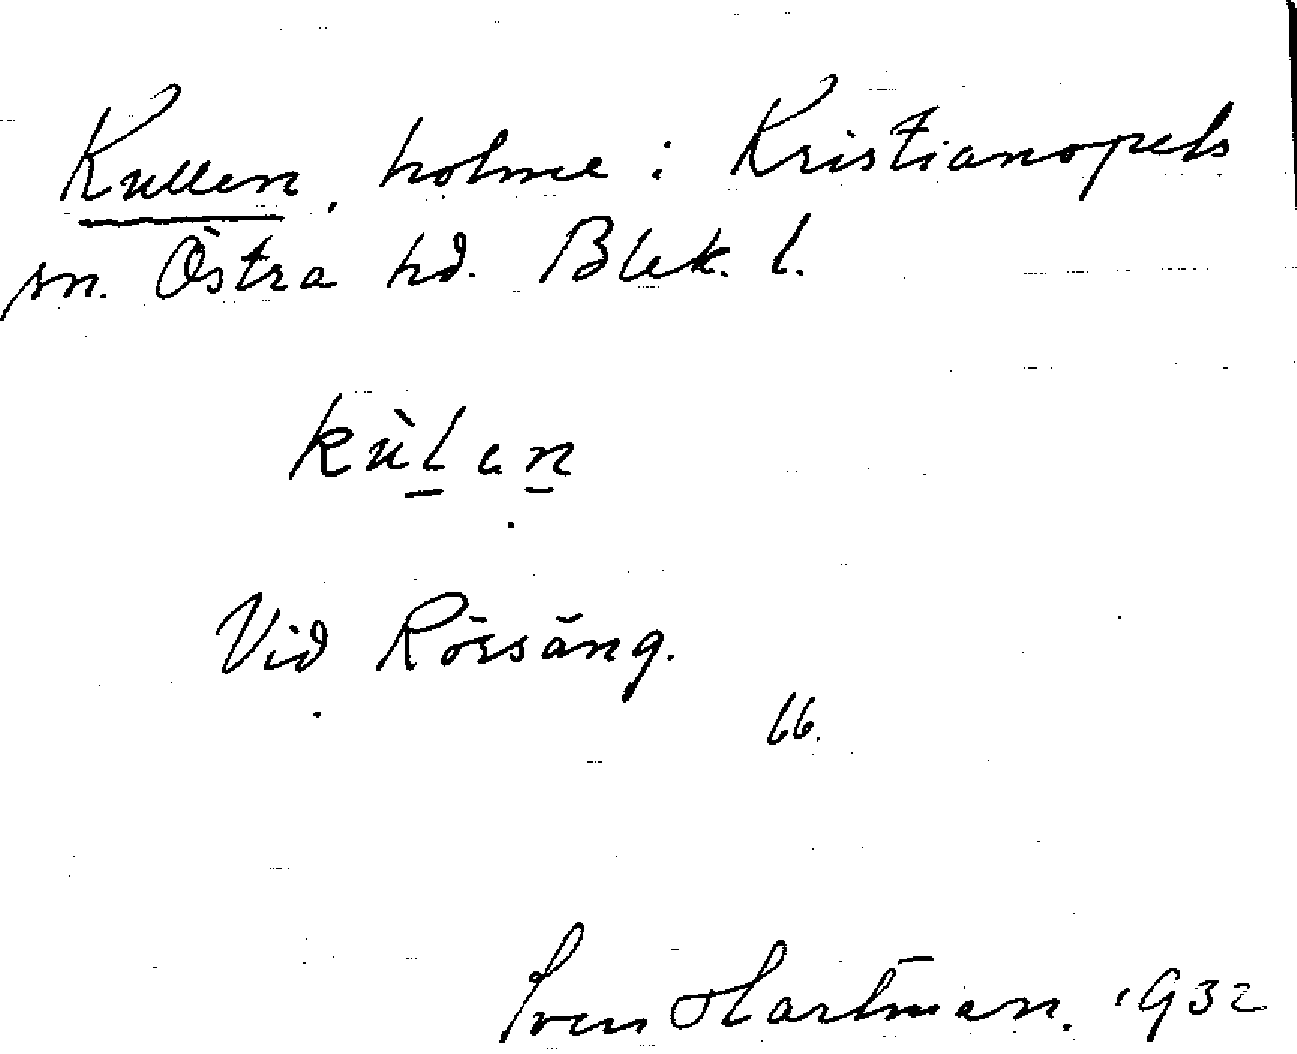 Kullen, holme i Kristianopels
sn. Östra hd. Blek. l.
kùlan
Vid Rörsäng.
66.
Sven Hartman. 1932